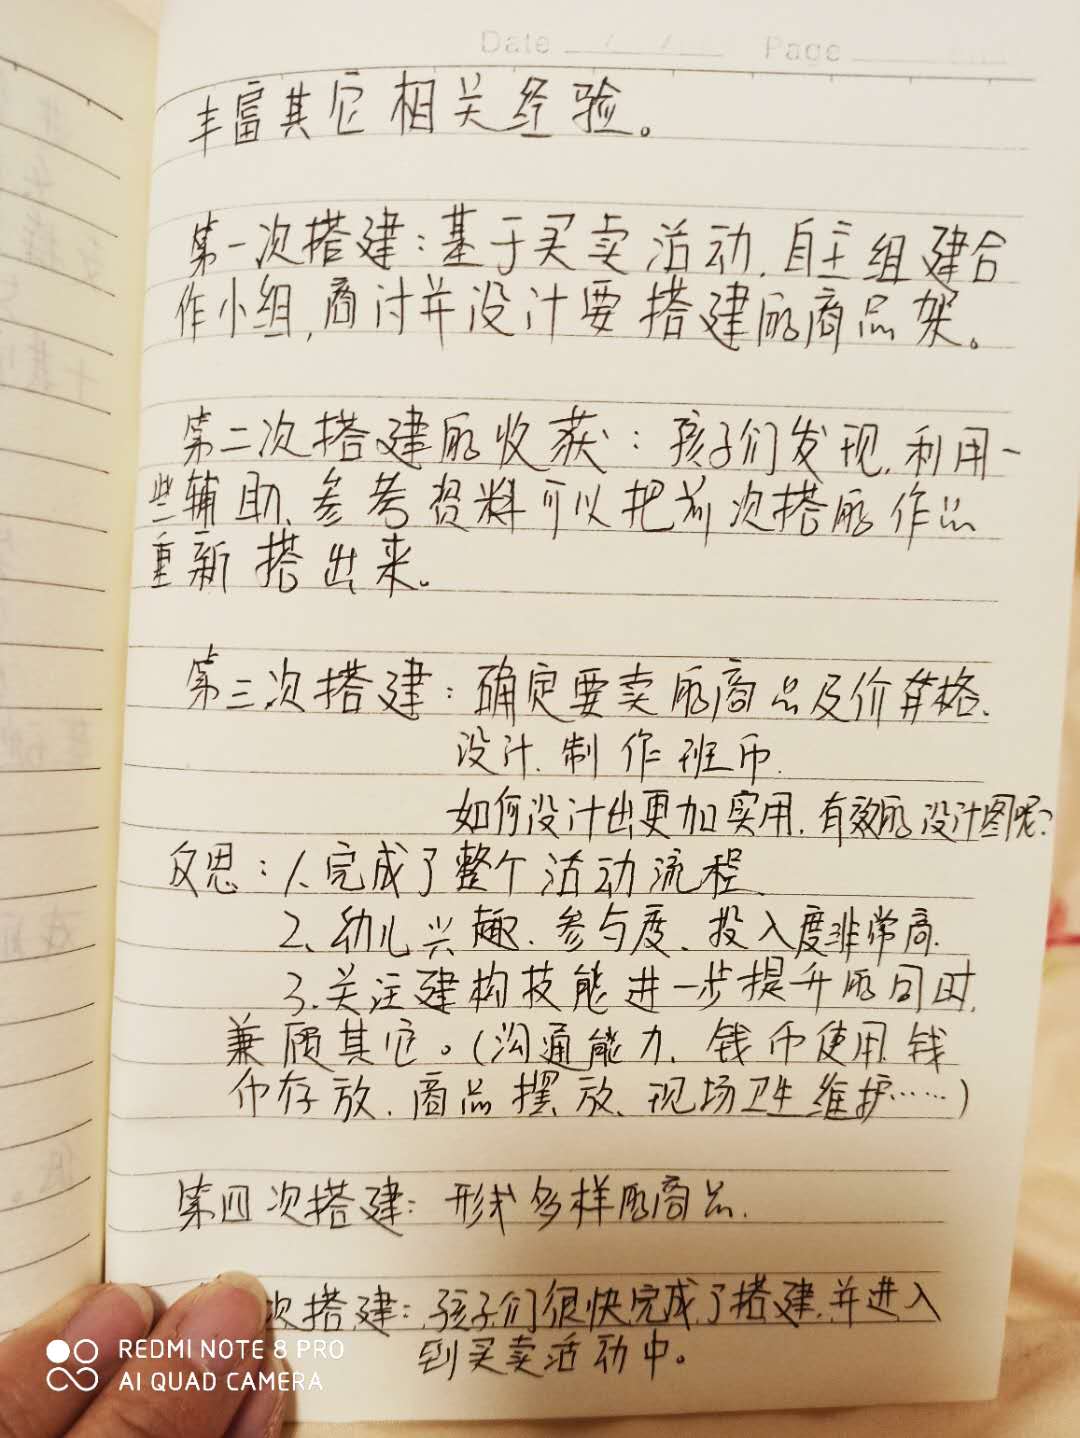 Date / / Page
丰富其它相关经验。
第一次搭建：基于买卖活动,自主组建合
作小组,商讨并设计要搭建的商品架。
第二次搭建的收获：孩子们发现,利用一
些辅助、参考资料可以把前次搭的作品
重新搭出来。
第三次搭建：确定要卖的商品及价格、
设计、制作班币.
如何设计出更加实用、有效的设计图呢?
反思：1、完成了整个活动流程、
2、幼儿兴趣、参与度、投入度非常高、
3、关注建构技能进一步提升的同时,
兼顾其它。(沟通能力、钱币使用、钱
币存放、商品摆放、现场卫生维护……)
第四次搭建：形式多样的商品.
次搭建：孩子们很快完成了搭建,并进入
到买卖活动中。
REDMI NOTE 8 PRO
AI QUAD CAMERA